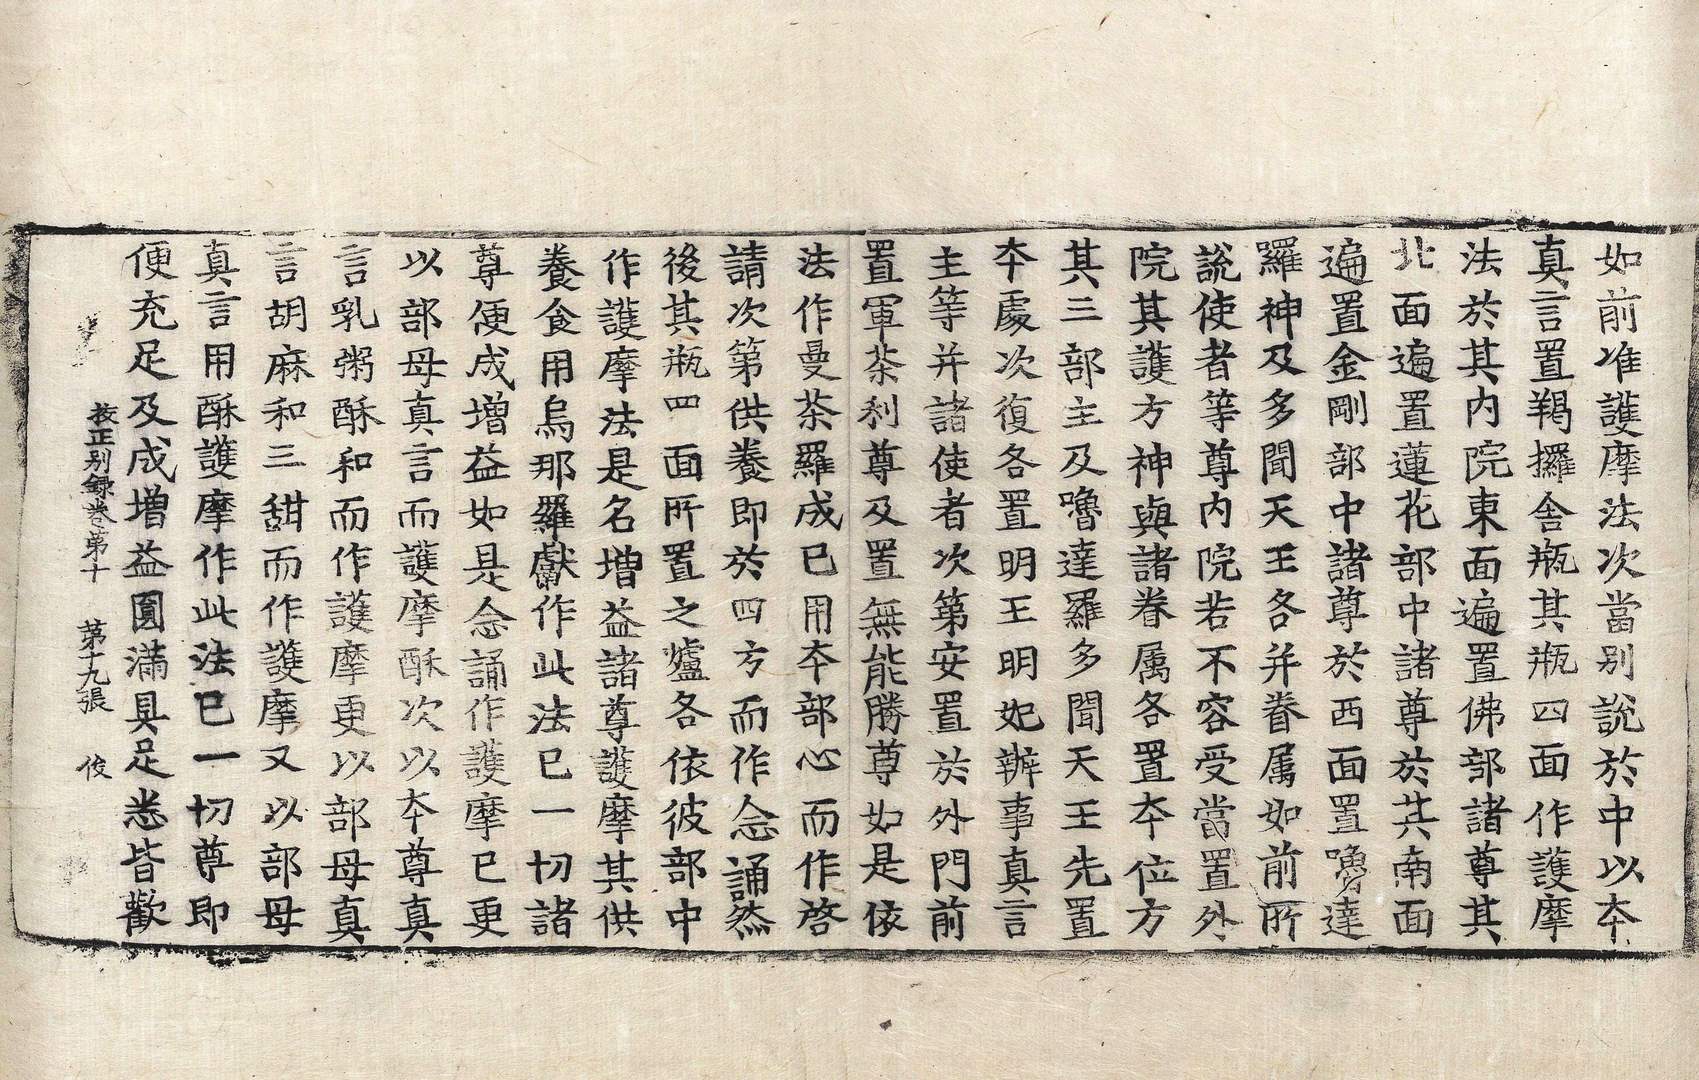 如前准護摩法次當别說於中以夲
真言置羯攞舎瓶其瓶四面作護摩
法於其内院東面遍置佛部諸尊其
北面遍置蓮花部中諸尊於其南面
遍置金剛部中諸尊於西面置嚕達
羅神及多聞天王各并眷属如前所
說使者等尊内院若不容受當置外
院其護方神與諸眷属各置夲位方
其三部主及嚕達羅多聞天王先置
夲處次復各置明王明妃辦事真言
主等并諸使者次第安置於外門前
置軍荼利尊及置無能勝尊如是依
法作曼荼羅成已用夲部心而作啓
請次第供養即於四方而作念誦然
後其瓶四面所置之爐各依彼部中
作護摩法是名增益諸尊護摩其供
養食用烏那羅獻作此法已一切諸
尊便成增益如是念誦作護摩已更
以部母真言而護摩酥次以夲尊真
言乳粥酥和而作護摩更以部母真
言胡麻和三甜而作護摩又以部母
真言用酥護摩作此法已一切尊即
便充足及成增益圓滿具足悉皆歡
挍正别録卷第十　苐十九張　俊